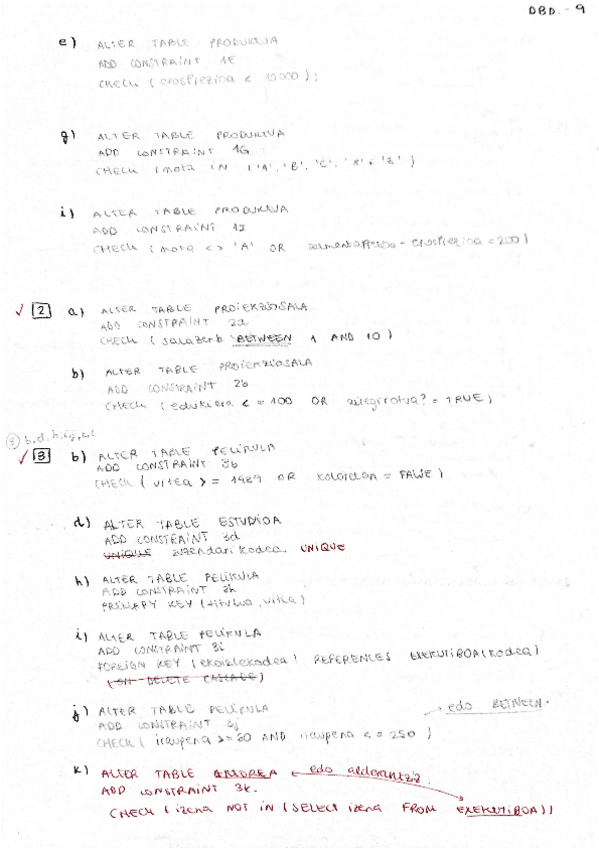 DBD. - 9
e) ALTER TABLE PRODUKTUA
ADD CONSTRAINT 1E
CHECK (erosPrezioa < 10000);
g) ALTER TABLE PRODUKTUA
ADD CONSTRAINT 1G
CHECK (mota IN ('A', 'B', 'C', 'X', 'Z')
i) ALTER TABLE PRODUKTUA
ADD CONSTRAINT 1I
CHECK (mota <> 'A' OR - erosPrezioa < 200)
✓ 2 a) ALTER TABLE PROIEKZIOSALA
ADD CONSTRAINT 2a
CHECK (salaZenb BETWEEN 1 AND 10)
b) ALTER TABLE PROIEKZIOSALA
ADD CONSTRAINT 2b
CHECK (edukiera <= 100 OR = TRUE)
3) b, d, h, i, j, k
✓ 3 b) ALTER TABLE PELIKULA
ADD CONSTRAINT 3b
CHECK (urtea >= OR koloretan = FALSE)
d) ALTER TABLE ESTUDIOA
ADD CONSTRAINT 3d
UNIQUE zuzendariKodea UNIQUE
h) ALTER TABLE PELIKULA
ADD CONSTRAINT 3h
PRIMARY KEY (titulua, urtea)
i) ALTER TABLE PELIKULA
ADD CONSTRAINT 3i
FOREIGN KEY (ekoizlekodea) REFERENCES EXEKUTIBOA(kodea)
(ON DELETE CASCADE)
j) ALTER TABLE PELIKULA → edo BETWEEN.
ADD CONSTRAINT 3j
CHECK (iraupena >= 60 AND iraupena <= 250)
k) ALTER TABLE ← edo alderantziz.
ADD CONSTRAINT 3k.
CHECK (izena NOT IN (SELECT izena FROM EXEKUTIBOA))